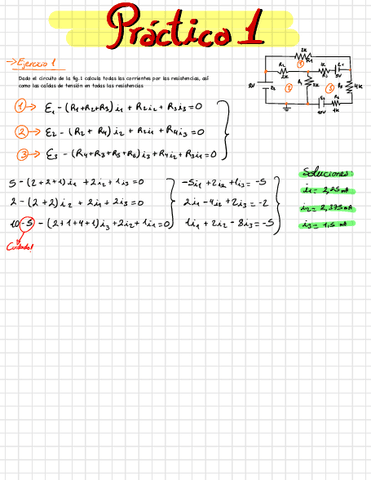 Práctica 1
→ Ejercicio 1
Dado el circuito de la fig.1 calcula todas las corrientes por las resistencias, así
como las caídas de tensión en todas las resistencias
① → E1 - (R1+R2+R3) i1 + R2i2 + R3i3 = 0
② → E2 - (R2 + R4) i2 + R2i1 + R4i3 = 0
③ → E3 - (R4+R3+R5+R6) i3 + R4i2 + R3i1 = 0
5 - (2+2+1) i1 + 2i2 + 1i3 = 0
2 - (2+2) i2 + 2i1 + 2i3 = 0
10 - 5 - (2+1+4+1) i3 + 2i2 + 1i1 = 0
Cuidado!
-5i1 + 2i2 + 1i3 = -5
2i1 - 4i2 + 2i3 = -2
1i1 + 2i2 - 8i3 = -5
Soluciones:
i1 = 2,25 mA
i2 = 2,375 mA
i3 = 1,5 mA